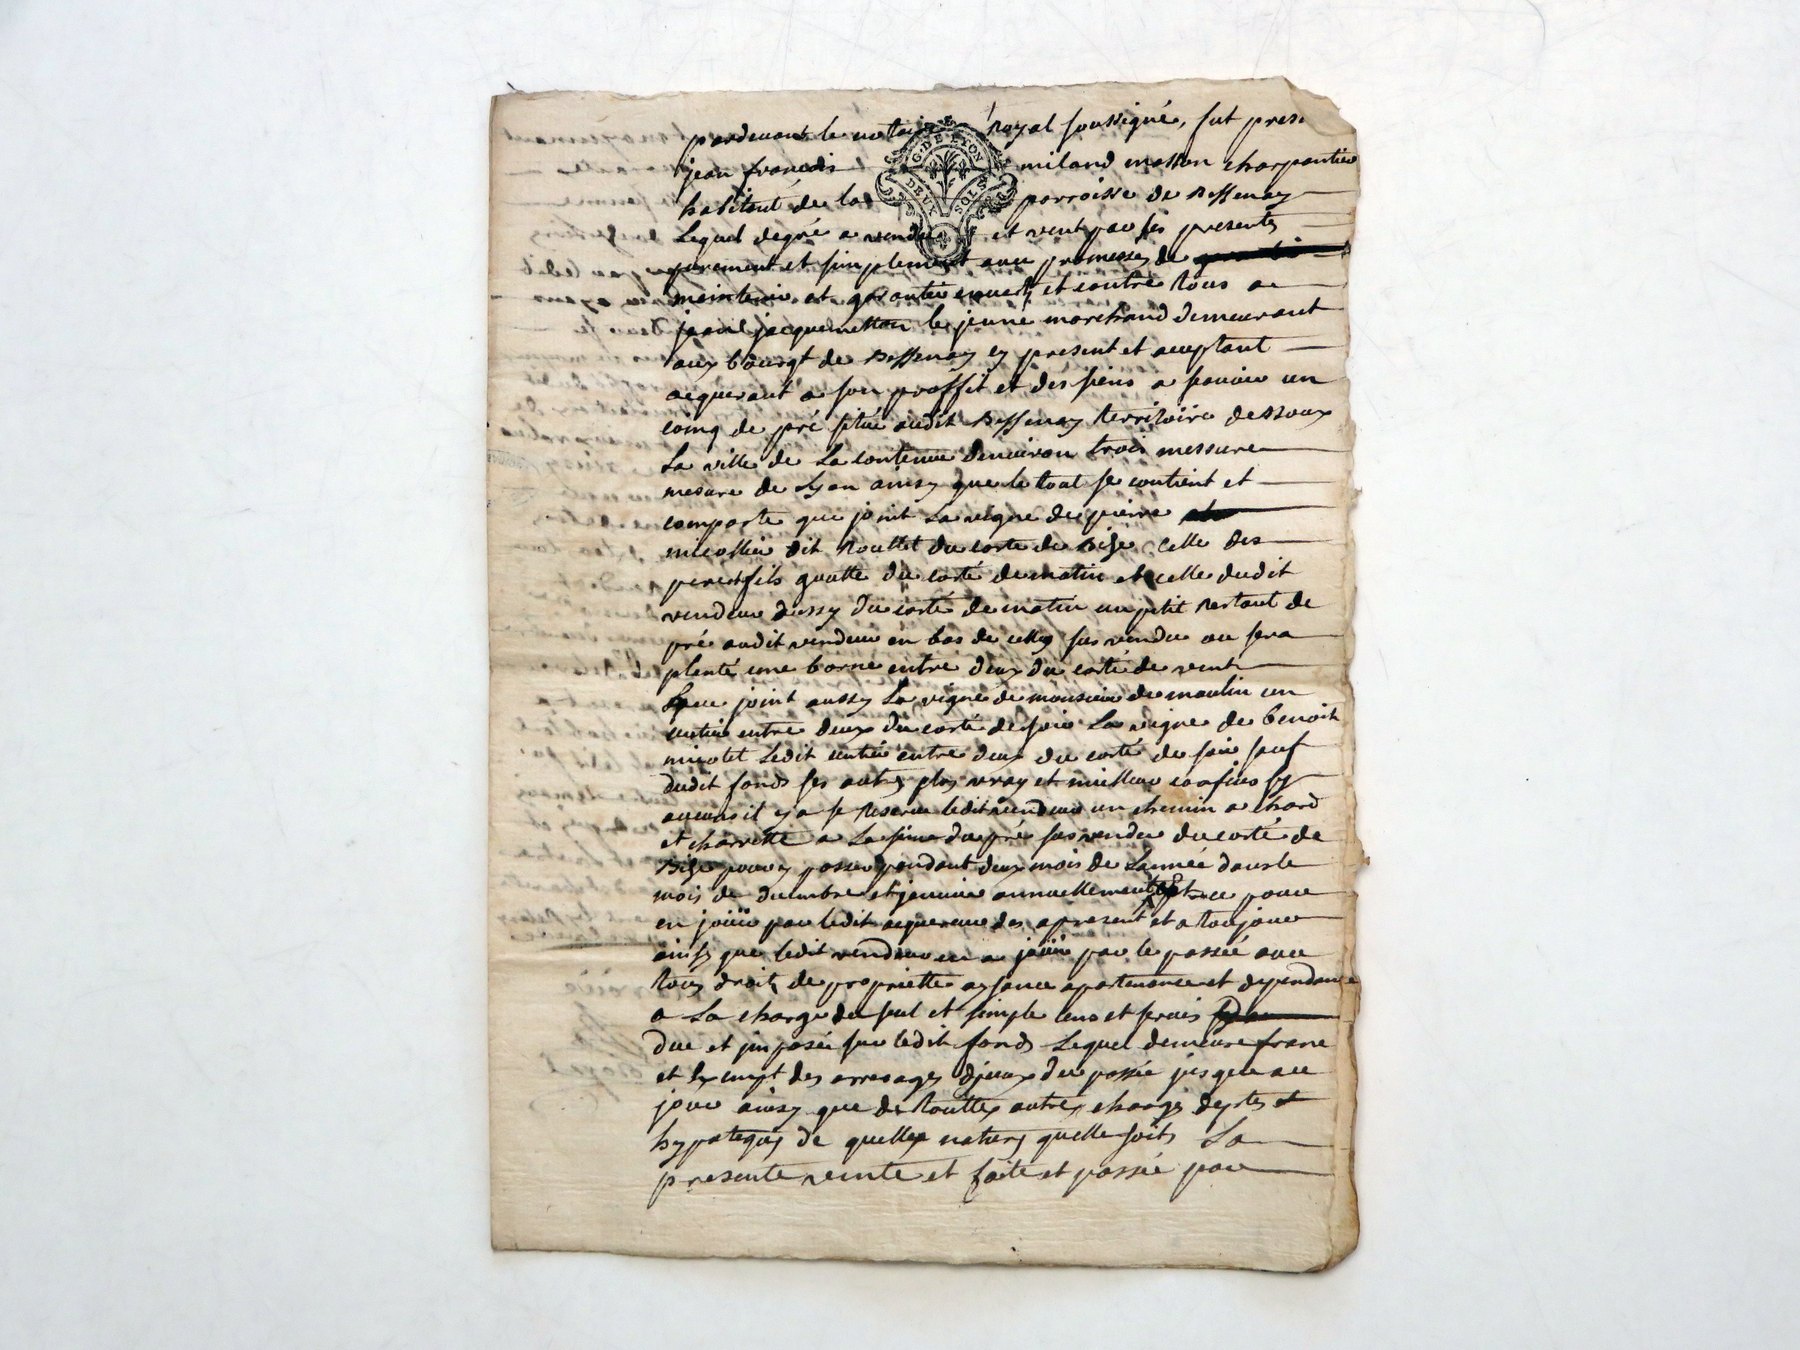 pardevant le notaire royal soussigné, fut present
G. DE LYON
DEUX SOLS
jean françois miland masson charpantier
habitant de la parroisse de Bessenay
Lequel de gré a vendu et vent par ses presentes
purement et simplement avec promesses de
maintenir et garantir envers et contre tous a
jacquemetton le jeune marchand demeurant
aux bourgt de Bessenay cy present et aceptant
aquerant a son proffit et des siens a scavoir un
coing de pré situé audit Bessenay territoire dessoux
La ville de La contenue denviron trois messure
mesure de Lyon ainsy que le tout se contient et
comporte que joint La vigne de pierre
dit du corté de Bize celle des
goutte du corté de matin et celle dudit
vendeur aussy du corté de matin un petit restant de
pré audit vendeur en bas de celluy sus vendu ou sera
planté une borne entre deux du corté de vent
joint aussy La vigne de monsieur dumoulin un
entre deux du corté de soir La vigne de benoit
ledit entre deux du corté de soir sauf
dudit fond ses autres plus vray et meilleur confins sy
aucuns il y a se reserve ledit vendeur un chemin a chard
et charrette a La sime du pré sus vendu du corté de
Bize pour y passer pendant deux mois de Lannée dans le
mois de decembre et janvier annuellement pour
en joüir par ledit aquereur des apresent et a toujour
ainsy que ledit vendeur en a joüir par le passé avec
tous droits de propriette aysance apartenance et dependance
a La charge du seul et simple cens et servis
due et imposée sur ledit fond Lequel demeure franc
et Exempt des arrerages diceux du passé jusque au
jour ainsy que de touttes autres charges deptes et
hypoteques de quelles natures quelle soits La
presente vente et faite et passée pour